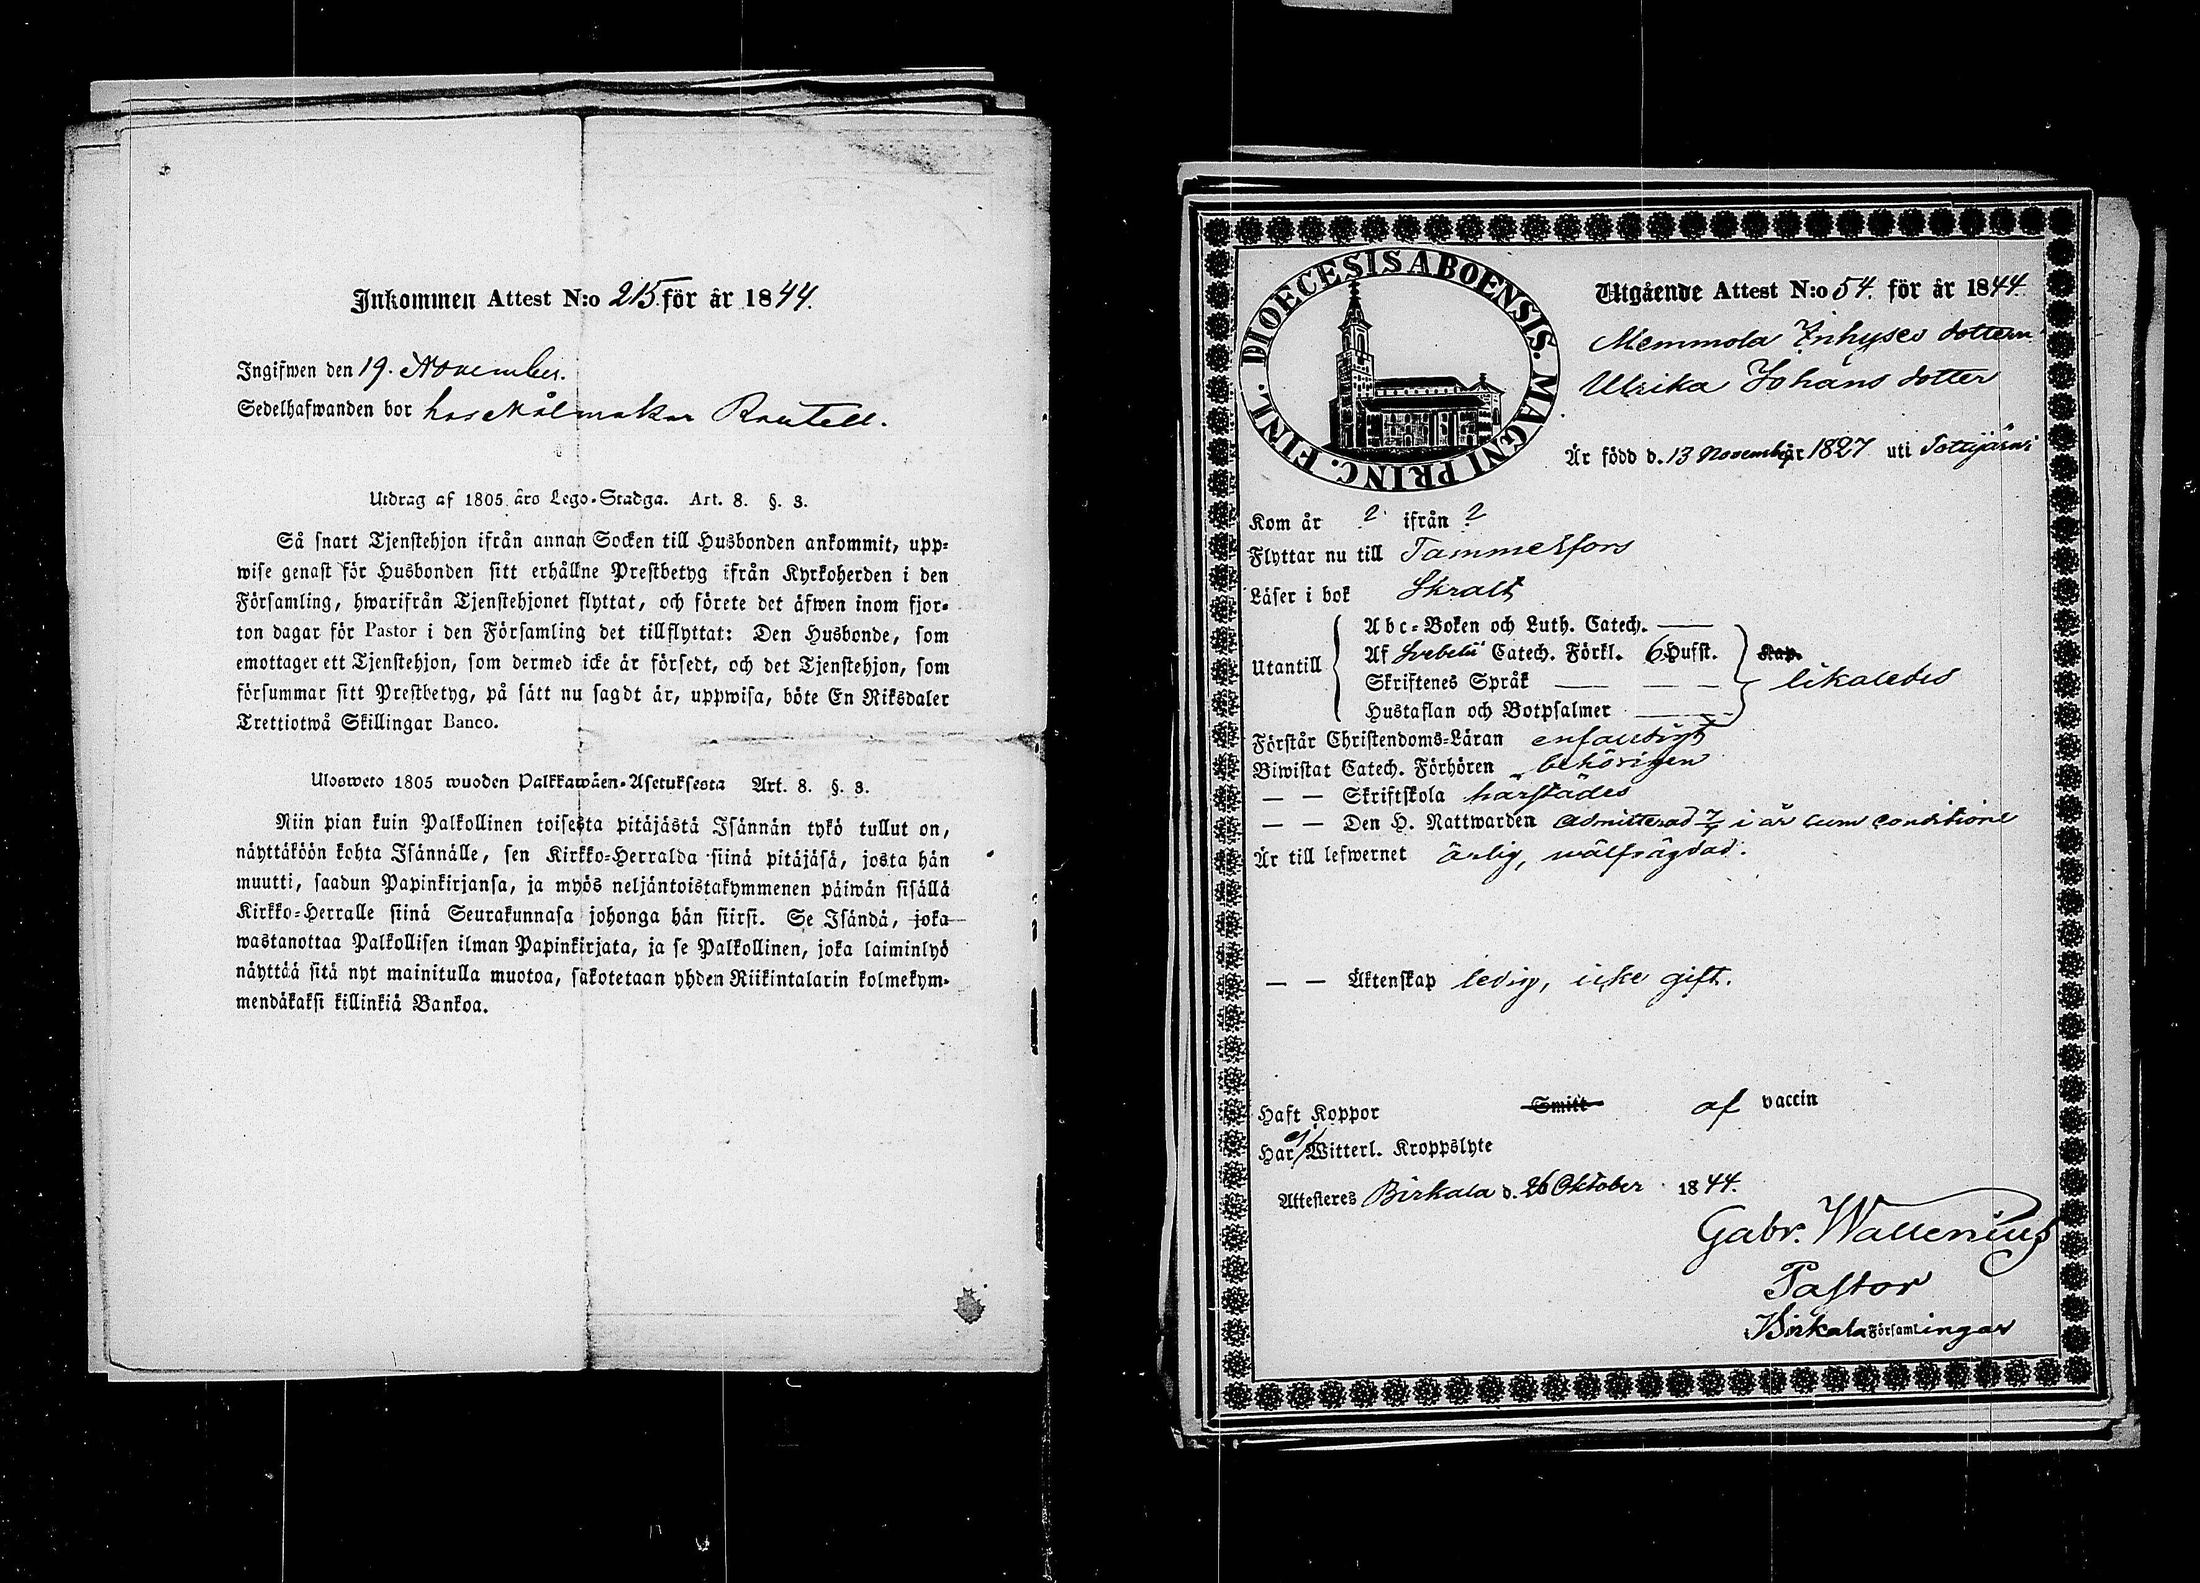 Inkommen Attest N:o 215 för år 1844.
Ingifwen den 19. November.
Sedelhafwanden bor hos Målmakar
Utdrag af 1805 års Lego-Stadga. Art. 8. §. 3.
Så snart Tjenstehjon ifrån annan Socken till Husbonden ankommit, upp-
wise genast för Husbonden sitt erhållne Prestbetyg ifrån Kyrkoherden i den
Församling, hwarifrån Tjenstehjonet flyttat, och förete det äfwen inom fjor-
ton dagar för Pastor i den Församling det tillflyttat: Den Husbonde, som
emottager ett Tjenstehjon, som dermed icke är försedt, och det Tjenstehjon, som
försummar sitt Prestbetyg, på sätt nu sagdt är, uppwisa, böte En Riksdaler
Trettiotwå Skillingar Banco.
Ulosweto 1805 wuoden Palkkawäen-Asetuksesta Art. 8. §. 3.
Niin pian kuin Palkollinen toisesta pitäjästä Isännän tykö tullut on,
näyttäköön kohta Isännälle, sen Kirkko-Herralda siinä pitäjäsä, josta hän
muutti, saadun Papinkirjansa, ja myös neljäntoistakymmenen päiwän sisällä
Kirkko-Herralle siinä Seurakunnasa johonga hän siirsi. Se Isändä, joka
wastanottaa Palkollisen ilman Papinkirjata, ja se Palkollinen, joka laiminlyö
näyttää sitä nyt mainitulla muotoa, sakotetaan yhden Riikintalarin kolmekym-
mendäkaksi killinkiä Bankoa.
DIOECESIS ABOENSIS. MAGNI PRINC. FINL.
Utgående Attest N:o 54. för år 1844
Memmola Inhyses dottern
Ulrika Johans dotter
Är född d. 13 November 1827 uti Tottijärvi
Kom år ? ifrån ?
Flyttar nu till Tammerfors
Läser i bok Skralt
Utantill
Abc-Boken och Luth. Catech.
Af Svebelii Catech. Förkl. 6 Hufst. Kap.
Skriftenes Språk likaledes
Hustaflan och Botpsalmer
Förstår Christendoms-Läran enfaldigt
Biwistat Catech. Förhören behörigen
— — Skriftskola härstädes
— — Den H. Nattwarden admitterad 7/7 i år cum conditione
Är till lefwernet ärlig, wälfrägdad.
— — Äktenskap ledig, icke gift.
Haft Koppor Smitt af vaccin
Har ej Witterl. Kroppslyte
Attesteres Birkala d. 26 Oktober 1844.
Gabr. Wallenius
Pastor
Birkala Församlingar